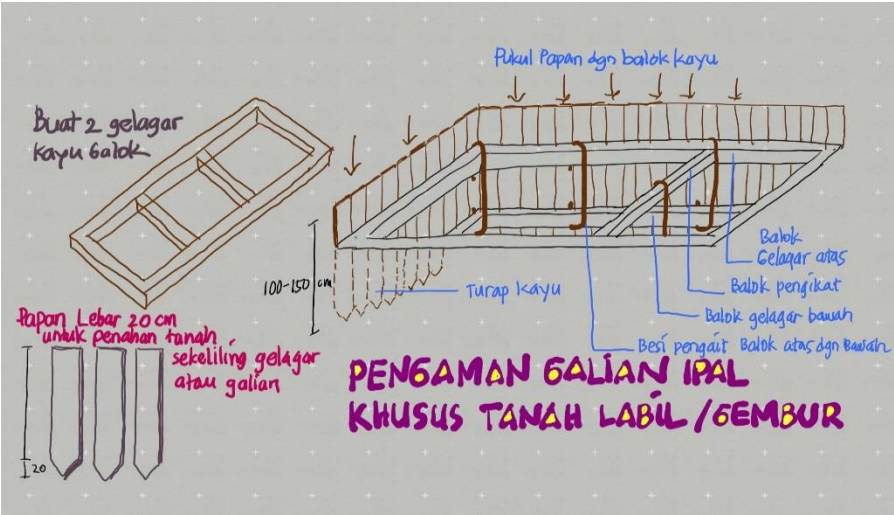 Pukul Papan dgn balok kayu
Buat 2 gelagar
kayu balok
Balok
Gelagar atas
Balok pengikat
Balok gelagar bawah
Besi pengait Balok atas dgn Bawah
100-150 cm
Turap kayu
Papan Lebar 20 cm
untuk penahan tanah
sekeliling gelagar
atau galian
20
PENGAMAN GALIAN IPAL
KHUSUS TANAH LABIL/GEMBUR